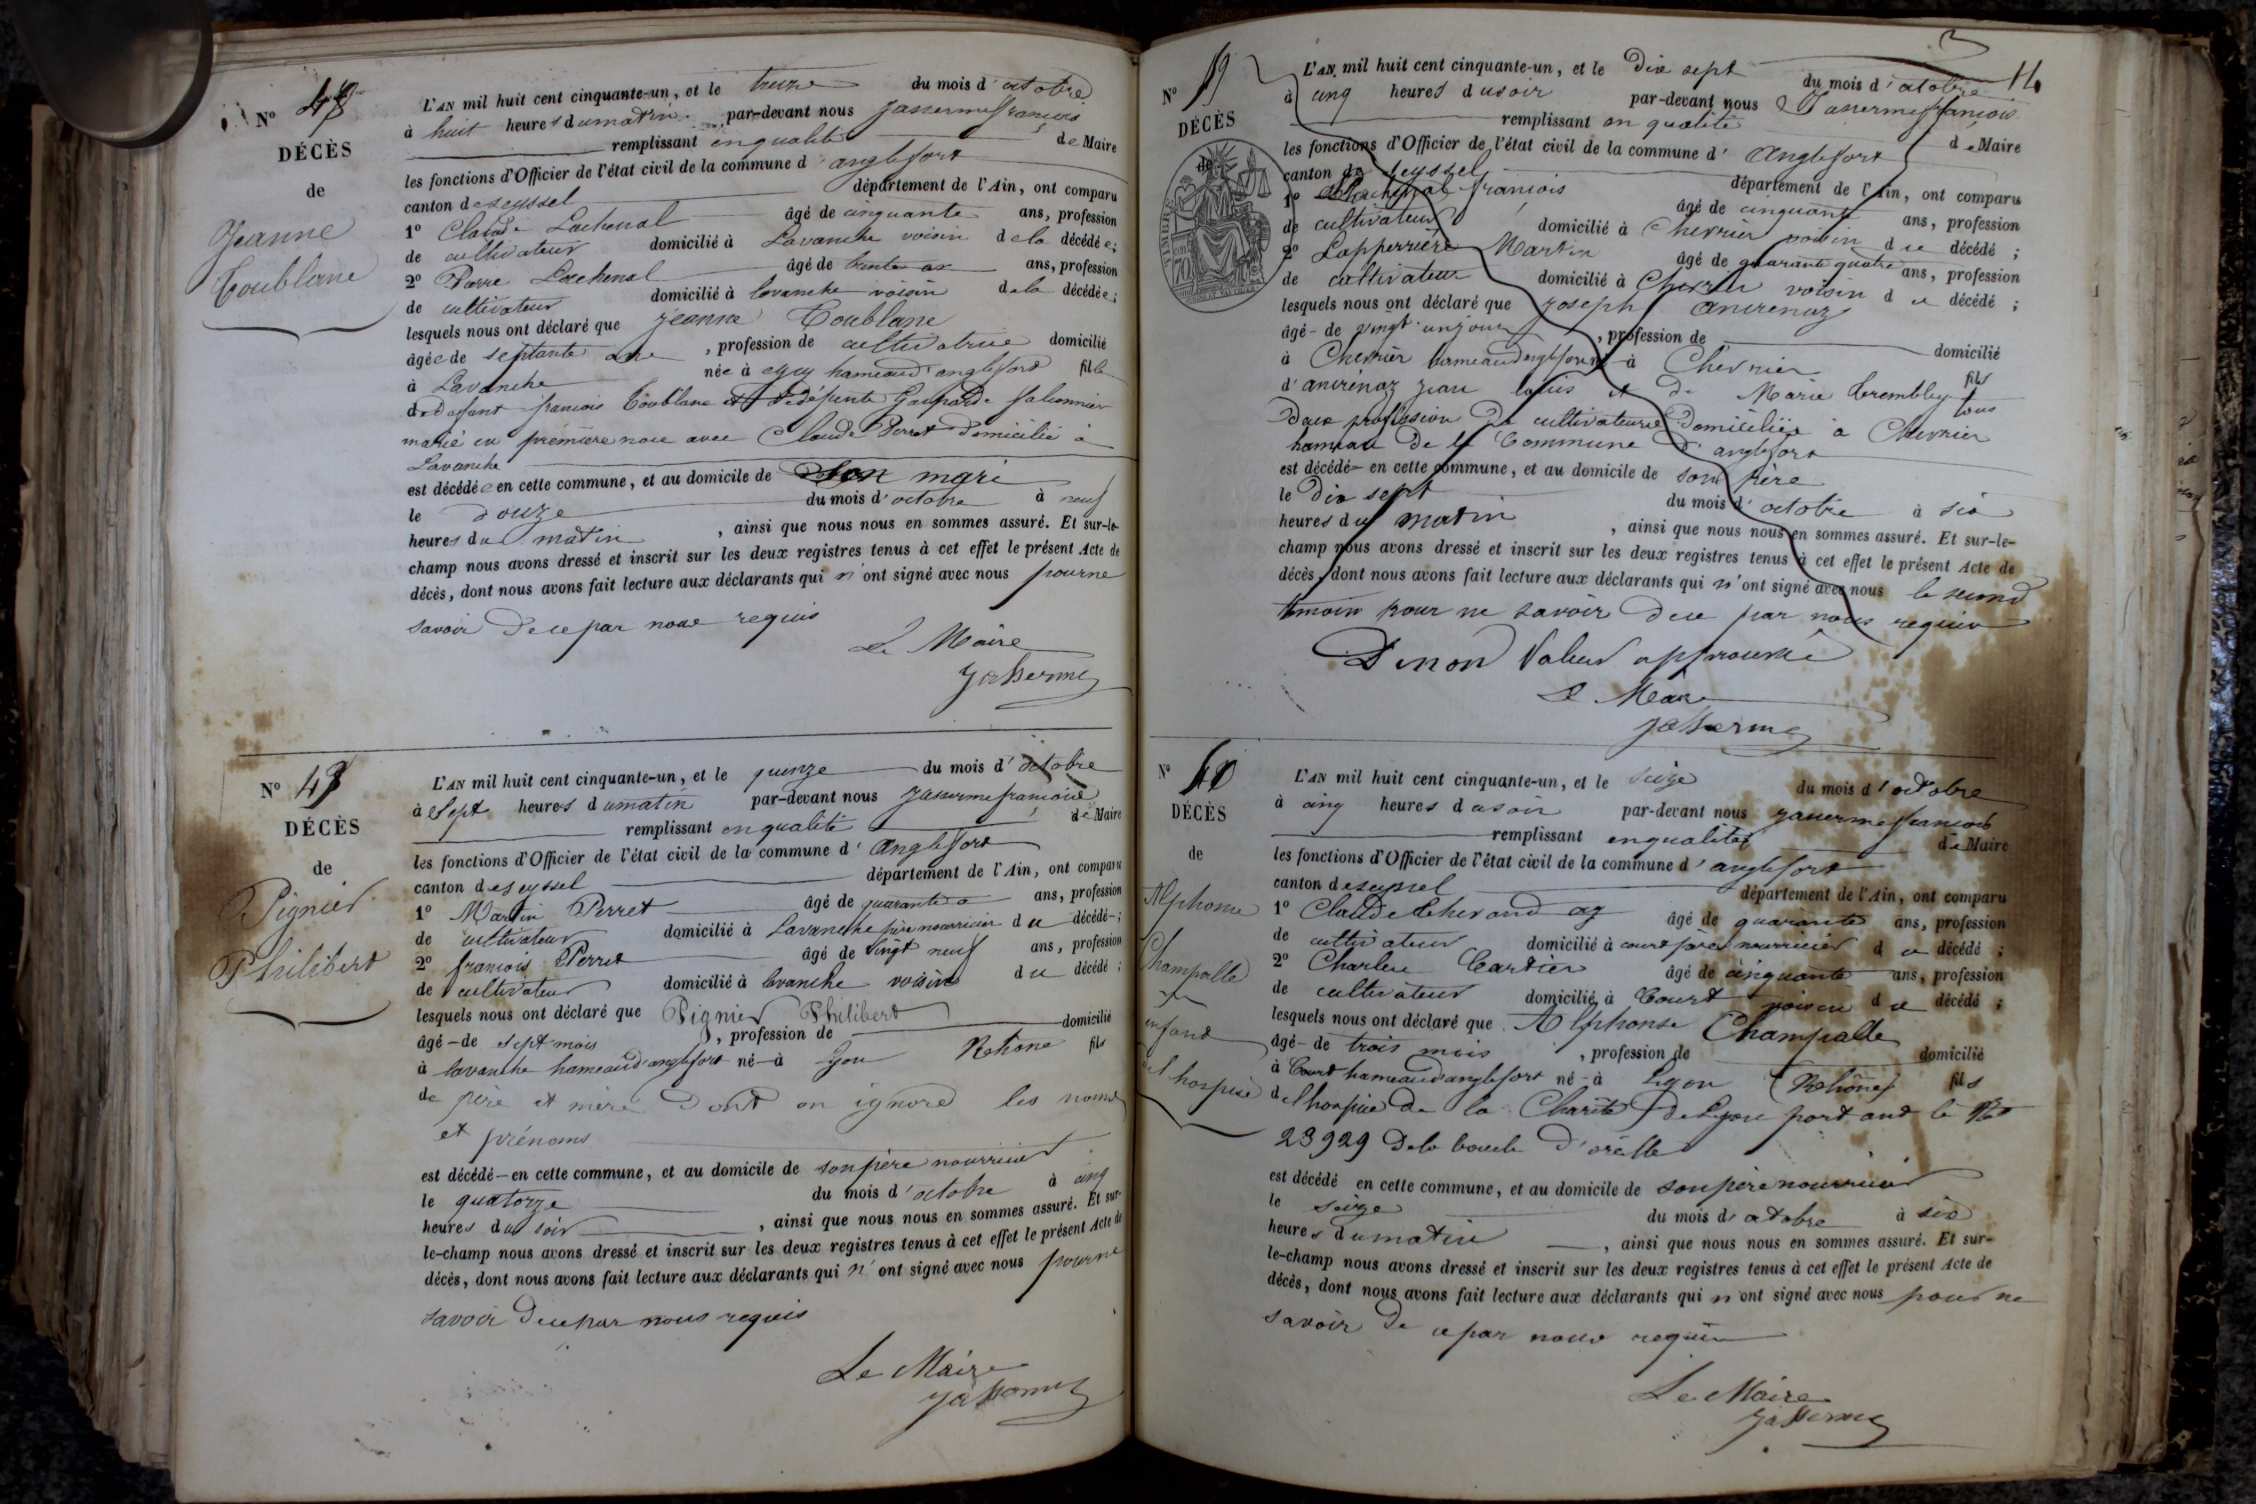 N° 48
DÉCÈS
de
Jeanne
Toublane
L'AN mil huit cent cinquante-un, et le treize du mois d'octobre
à huit heures du matin par-devant nous Jasserme françois
remplissant en qualité de Maire
les fonctions d'Officier de l'état civil de la commune d'anglefort
canton de seyssel département de l'Ain, ont comparu
1° Claude Lachenal âgé de cinquante ans, profession
de cultivateur domicilié à Lavanche voisin de la décédée;
2° Pierre Lachenal âgé de trente ans, profession
de cultivateur domicilié à lavanche voisin de la décédée;
lesquels nous ont déclaré que jeanne Toublane
âgée de septante une, profession de cultivatrice domicilié
à Lavanche née à hameau d'anglefort fille
de défunt françois Toublane et de défunte
marié en première noce avec Claude Perret domicilié à
Lavanche
est décédée en cette commune, et au domicile de son mari
le douze du mois d'octobre à neuf
heures du matin, ainsi que nous nous en sommes assuré. Et sur-le-
champ nous avons dressé et inscrit sur les deux registres tenus à cet effet le présent Acte de
décès, dont nous avons fait lecture aux déclarants qui n'ont signé avec nous pour ne
savoir de ce par nous requis
Le Maire
Jasserme
N° 49
DÉCÈS
de
Pignier
Philibert
L'AN mil huit cent cinquante-un, et le quinze du mois d'octobre
à sept heures du matin par-devant nous Jasserme françois
remplissant en qualité de Maire
les fonctions d'Officier de l'état civil de la commune d'anglefort
canton de seyssel département de l'Ain, ont comparu
1° Martin Perret âgé de quarante ans, profession
de cultivateur domicilié à Lavanche père nourricier du décédé;
2° françois Perret âgé de vingt neuf ans, profession
de cultivateur domicilié à lavanche voisin du décédé;
lesquels nous ont déclaré que Pignier Philibert
âgé de sept mois, profession de domicilié
à lavanche hameau d'anglefort né à lyon Rhône fils
de père et mère dont on ignore les noms
et prénoms
est décédé en cette commune, et au domicile de son père nourricier
le quatorze du mois d'octobre à cinq
heures du soir, ainsi que nous nous en sommes assuré. Et sur-
le-champ nous avons dressé et inscrit sur les deux registres tenus à cet effet le présent Acte de
décès, dont nous avons fait lecture aux déclarants qui n'ont signé avec nous pour ne
savoir de ce par nous requis
Le Maire
Jasserme
14
N°
DÉCÈS
de
TIMBRE
L'AN mil huit cent cinquante-un, et le Dix sept du mois d'octobre
à cinq heures du soir par-devant nous Jasserme françois
remplissant en qualité de Maire
les fonctions d'Officier de l'état civil de la commune d'Anglefort
canton de seyssel département de l'Ain, ont comparu
1° Lachenal françois âgé de cinquante ans, profession
de cultivateur domicilié à Chevrier voisin du décédé;
2° Lapperrière Martin âgé de quarante quatre ans, profession
de cultivateur domicilié à Chevrier voisin du décédé;
lesquels nous ont déclaré que joseph ancrenaz
âgé de vingt un jour, profession de domicilié
à Chevrier hameau d'anglefort né à Chevrier fils
d'ancrenaz jean louis et de Marie Trembley tous
deux profession de cultivateurs domiciliés à Chevrier
hameau de la Commune d'anglefort
est décédé en cette commune, et au domicile de son père
le Dix sept du mois d'octobre à six
heures du matin, ainsi que nous nous en sommes assuré. Et sur-le-
champ nous avons dressé et inscrit sur les deux registres tenus à cet effet le présent Acte de
décès, dont nous avons fait lecture aux déclarants qui n'ont signé avec nous le second
témoin pour ne savoir de ce par nous requis
De non valeur approuvé
Le Maire
Jasserme
N°
DÉCÈS
de
Alphonse
Champalle
enfant
de l'hospice
L'AN mil huit cent cinquante-un, et le seize du mois d'octobre
à cinq heures du soir par-devant nous Jasserme françois
remplissant en qualité de Maire
les fonctions d'Officier de l'état civil de la commune d'anglefort
canton de seyssel département de l'Ain, ont comparu
1° Claude âgé de quarante ans, profession
de cultivateur domicilié à court père nourricier du décédé;
2° Charles Cartier âgé de cinquante ans, profession
de cultivateur domicilié à Court voisin du décédé;
lesquels nous ont déclaré que Alphonse Champalle
âgé de trois mois, profession de domicilié
à Court hameau d'anglefort né à Lyon (Rhône) fils
de l'hospice de la Charité de Lyon portant le N°
23929 de la boucle d'oreille
est décédé en cette commune, et au domicile de son père nourricier
le seize du mois d'octobre à six
heures du matin, ainsi que nous nous en sommes assuré. Et sur-
le-champ nous avons dressé et inscrit sur les deux registres tenus à cet effet le présent Acte de
décès, dont nous avons fait lecture aux déclarants qui n'ont signé avec nous pour ne
savoir de ce par nous requis
Le Maire
Jasserme